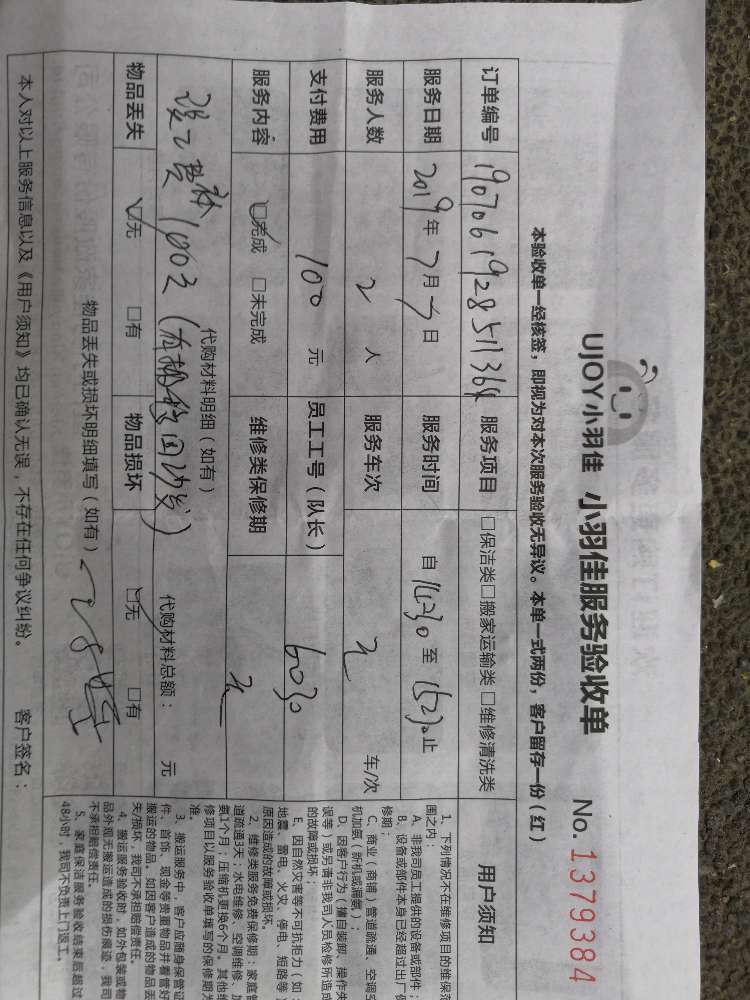 UJOY小羽佳 小羽佳服务验收单 No. 1379384
本验收单一经核签，即视为对本次服务验收无异议。本单一式两份，客户留存一份（红）
订单编号 服务项目 □保洁类□搬家运输类□维修清洗类
服务日期 2019年7月7日 服务时间 自 至 止
服务人数 2 人 服务车次 车/次
支付费用 100 元 员工工号（队长） 6030
服务内容 完成 □未完成 维修类保修期
代购材料明细（如有） 代购材料总额： 元
物品丢失 无 □有 物品损坏 无 □有
物品丢失或损坏明细填写（如有）
本人对以上服务信息以及《用户须知》均已确认无误，不存在任何争议纠纷。 客户签名：
用户须知
1、下列情况不在维修项目的维保范
围之内：
A、非我司员工提供的设备或部件；
B、设备或部件本身已经超过出厂保
修期；
C、商业（商铺）管道疏通、空调安
机加氨（新机或漏氨）；
D、因客户行为（擅自装卸、操作失
误等）或另请非我司人员检修所造成
的故障或损坏；
E、因自然灾害等不可抗拒力（如：
地震、雷电、火灾、停电、短路等）
原因造成的故障或损坏。
2、维修类服务免费保修期：家庭管
道疏通3天；水电维修、空调维修、加
氨1个月；压缩机更换6个月。其他维
修项目以服务验收单填写的保修期为
准。
3、搬运服务中，客户应随身保管证
件、首饰、现金等贵重物品并看管好
搬运的物品。如因客户造成的物品丢
失/损坏，我司不承担赔偿责任。
4、搬运服务验收时，如外包装或物
品外观无搬运造成的损伤痕迹，我司
不承担赔偿责任。
5、家庭保洁服务验收结束后超过
48小时，我司不负责上门返工。